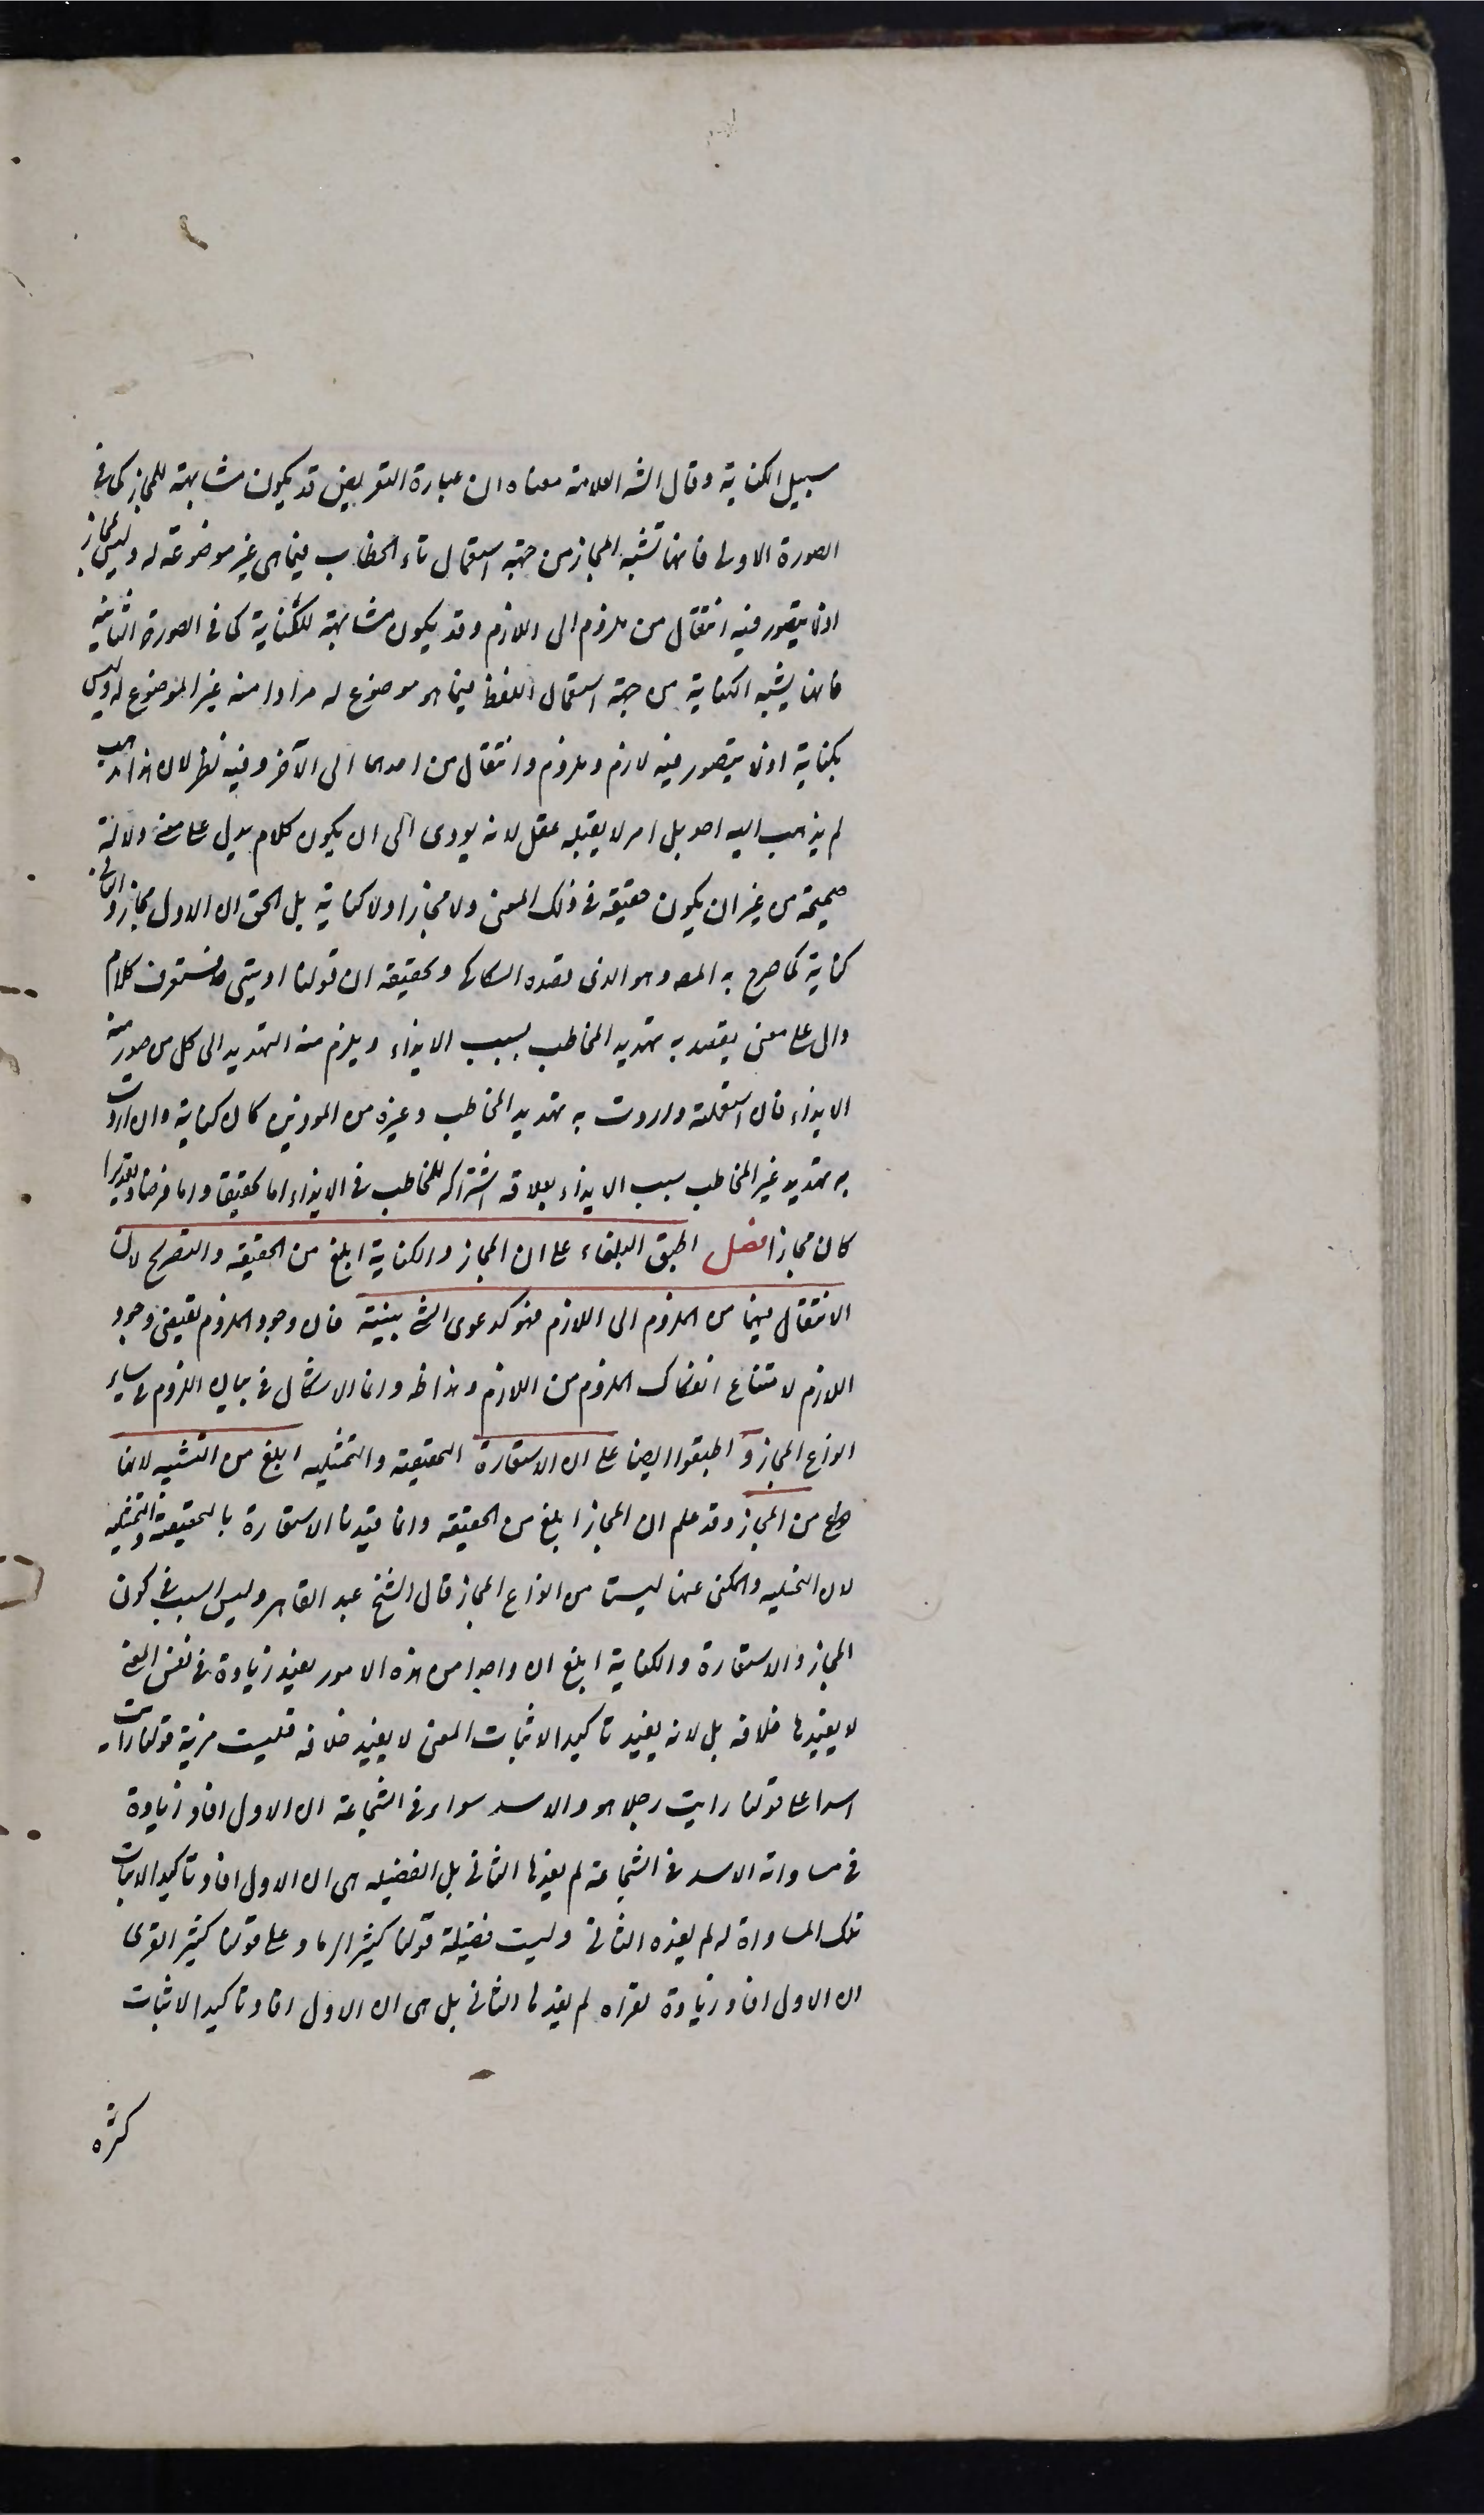 سبيل الكناية وقال الشه العلامة معناه ان عبارة التعريض قد يكون مشابهة للمجاز كما فى
الصورة الاولى فانها تشبه المجاز من جهة استعمال تاء الخطاب فيما هى غير موضوعة له وليس بمجاز
اذ لا يتصور فيه انتقال من ملزوم الى اللازم وقد يكون مشابهة للكناية كما فى الصورة الثانية
فانها يشبه الكناية من جهة استعمال اللفظ فيما هو موضوع له مرادا منه غير الموضوع له وليس
بكناية اذ لا يتصور فيه لازم وملزوم وانتقال من احدهما الى الآخر وفيه نظر لان هذا مذهب
لم يذهب اليه احد بل امر لا يقبله عقل لانه يودى الى ان يكون كلام يدل على معنى دلالة
صحيحة من غير ان يكون حقيقة فى ذلك المعنى ولا مجازا ولا كناية بل الحق ان الاول مجاز والثانى
كناية كما صرح به المصـ وهو الذى قصده السكاكى وتحقيقه ان قولنا اذيتنى فستعرف كلام
دال على معنى يقصد به تهديد المخاطب بسبب الايذاء ويلزم منه التهديد الى كل من صدر منه
الايذاء فان استعملته واردت به تهديد المخاطب وغيره من الموذين كان كناية وان اردت
به تهديد غير المخاطب بسبب الايذاء بعلاقة اشتراكه للمخاطب فى الايذاء اما تحقيقا واما فرضا وتقديرا
كان مجازا فصل اطبق البلغاء على ان المجاز والكناية ابلغ من الحقيقة والتصريح لان
الانتقال فيهما من الملزوم الى اللازم فهو كدعوى الشئ ببينة فان وجود الملزوم يقتضى وجود
اللازم لامتناع انفكاك الملزوم من اللازم وهذا ظـ وانما الاشكال فى بيان اللزوم فى ساير
انواع المجاز و اطبقوا ايضا على ان الاستعارة التحقيقية والتمثيلية ابلغ من التشبيه لانها
نوع من المجاز وقد علم ان المجاز ابلغ من الحقيقة وانما قيدنا الاستعارة بالتحقيقية والتمثيلية
لان التخييلية والمكنى عنها ليستا من انواع المجاز قال الشيخ عبد القاهر وليس السبب فى كون
المجاز والاستعارة والكناية ابلغ ان واحدا من هذه الامور يفيد زيادة فى نفس المعنى
لا يفيدها خلافه بل لانه يفيد تاكيدا لاثبات المعنى لا يفيد خلافه فليست مزية قولنا رايت
اسدا على قولنا رايت رجلا هو والاسد سواء فى الشجاعة ان الاول افاد زيادة
فى مساواته الاسد فى الشجاعة لم يفدها الثانى بل الفضيلة هى ان الاول افاد تاكيدا لاثبات
تلك المساواة له لم يفده الثانى وليست فضيلة قولنا كثير الرماد على قولنا كثير القرى
ان الاول افاد زيادة لقراه لم يفدها الثانى بل هى ان الاول افاد تاكيدا لاثبات
كثرة